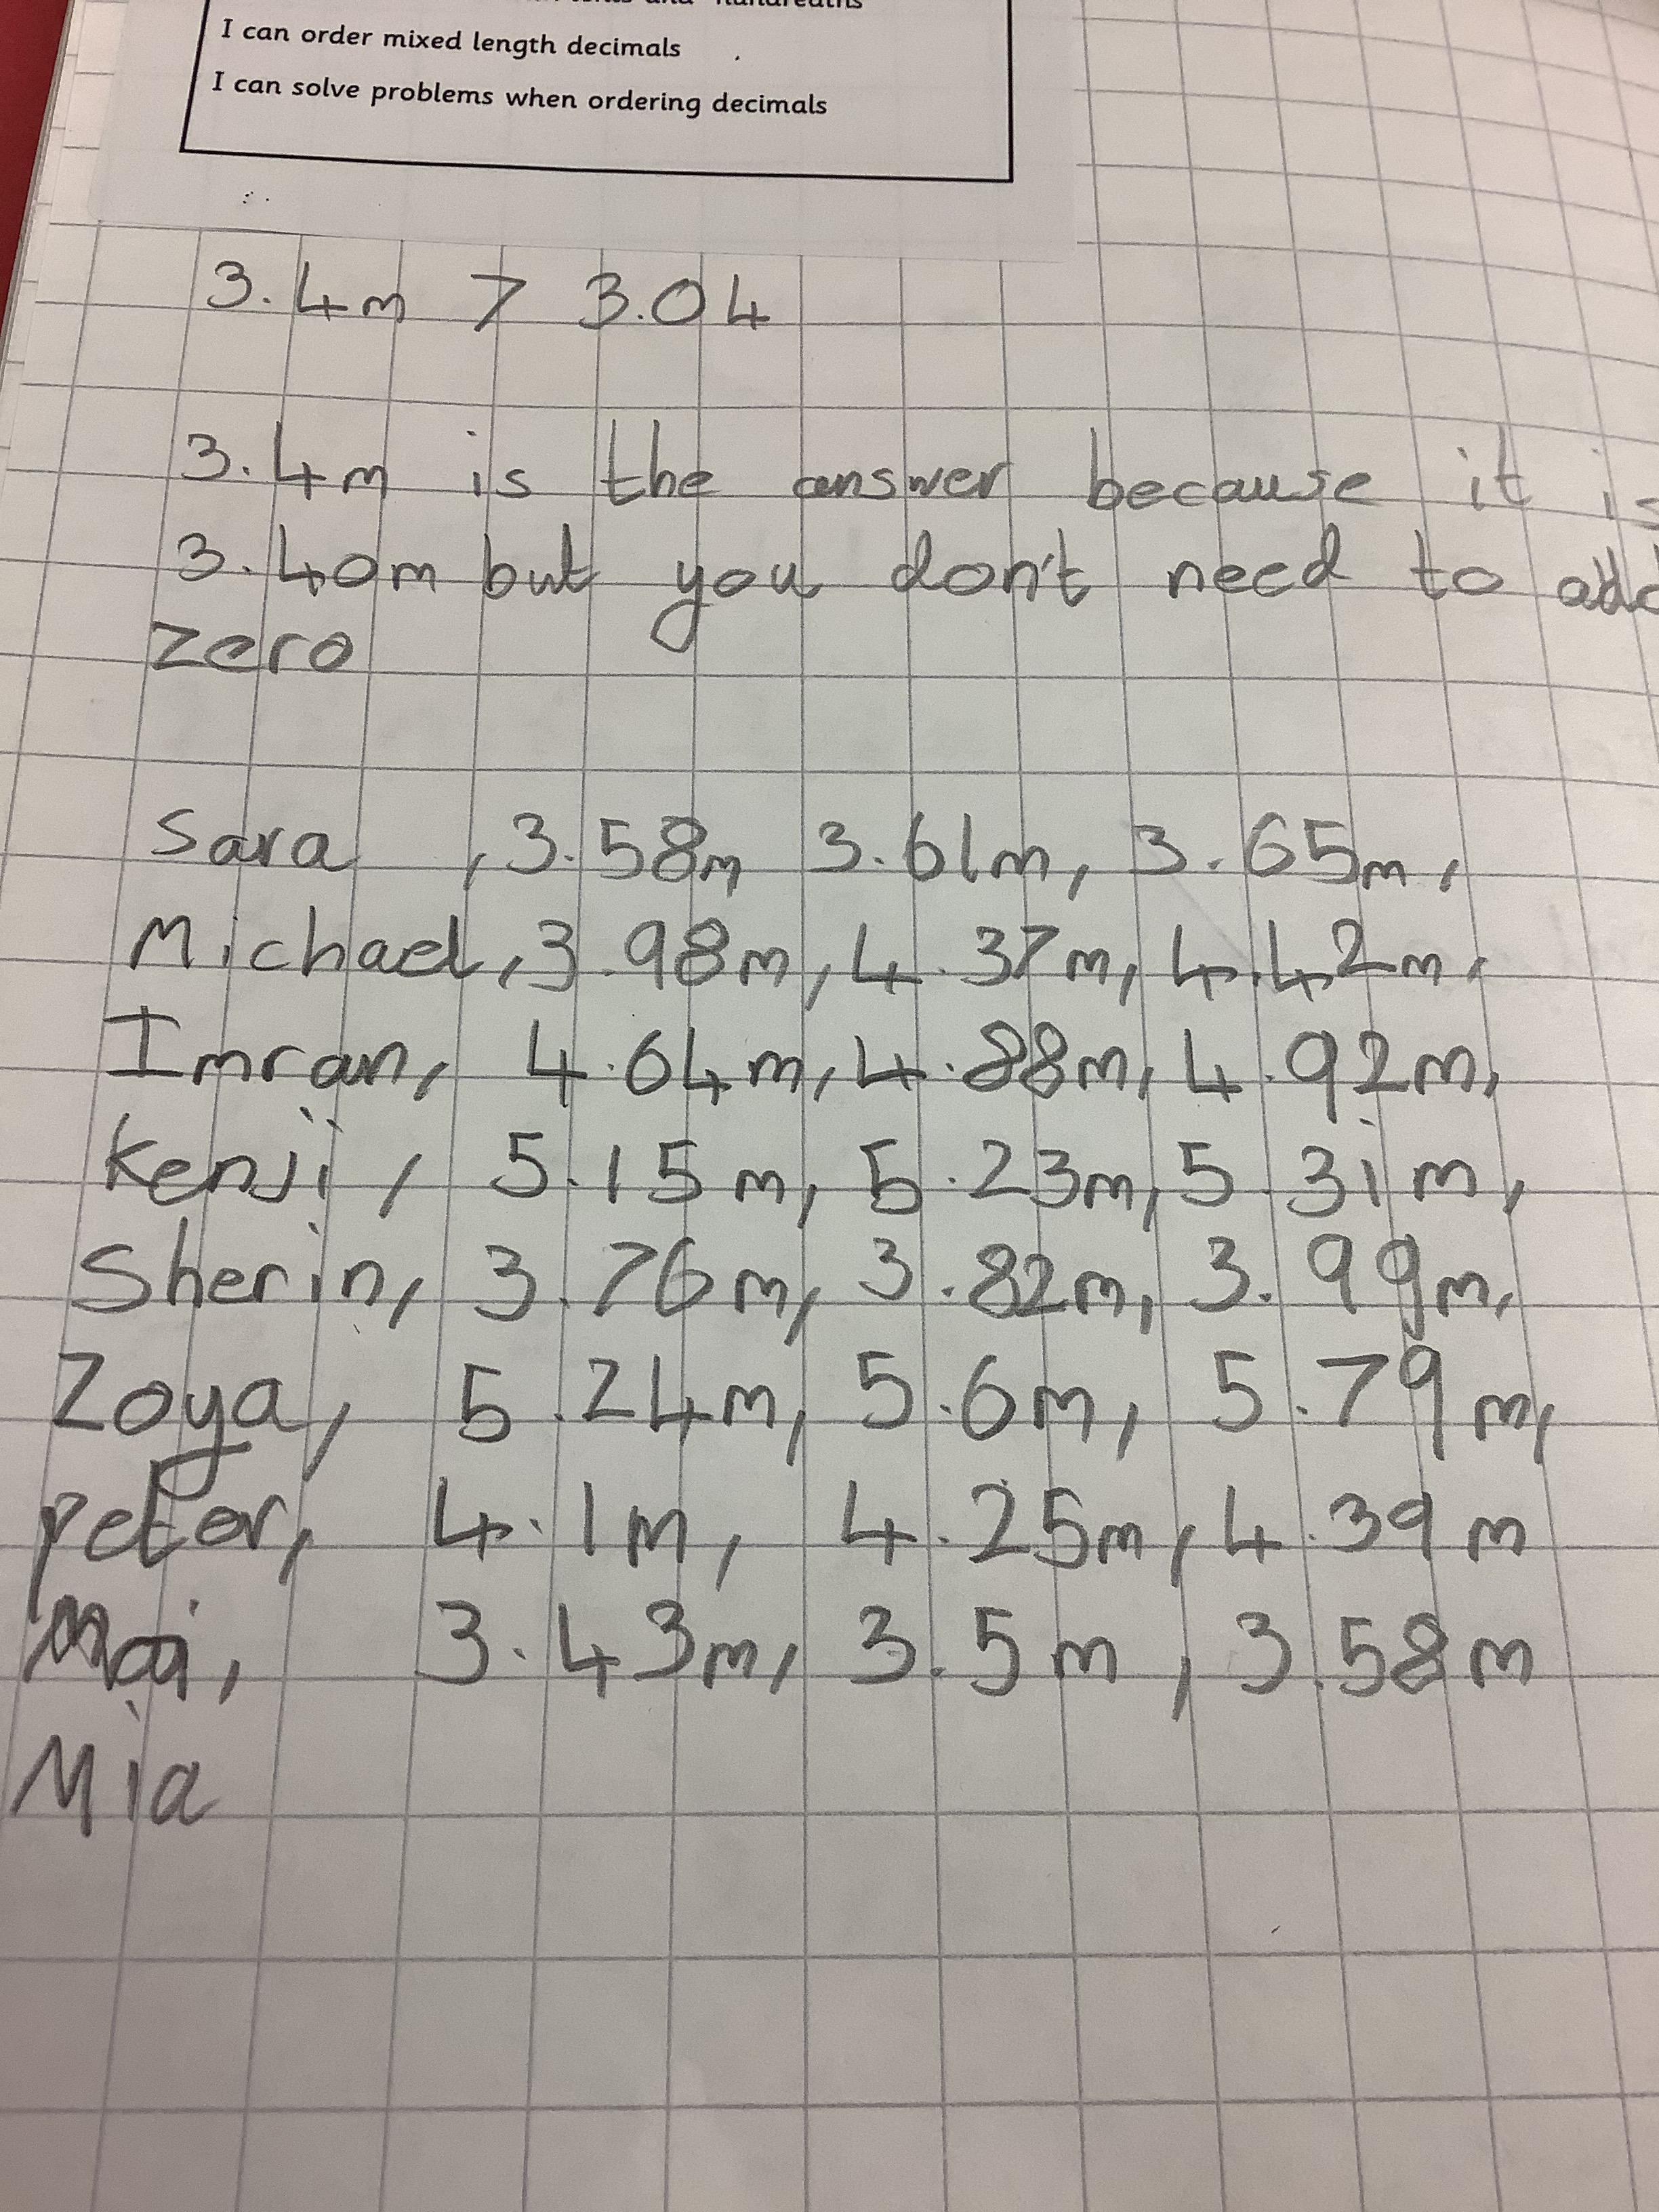 and hundredths
I can order mixed length decimals
I can solve problems when ordering decimals
3.4m > 3.04
3.4m is the answer because it is
3.40m but you don't need to add
zero
Sara , 3.58m 3.61m, 3.65m,
Michael, 3.98m, 4.37m, 4.42m,
Imran, 4.64m, 4.88m, 4.92m,
Kenji, 5.15m, 5.23m, 5.31m,
Sherin, 3.76m, 3.82m, 3.99m,
Zoya, 5.24m, 5.6m, 5.79m,
peter, 4.1m, 4.25m, 4.39m
3.43m, 3.5m, 3.58m
Mia